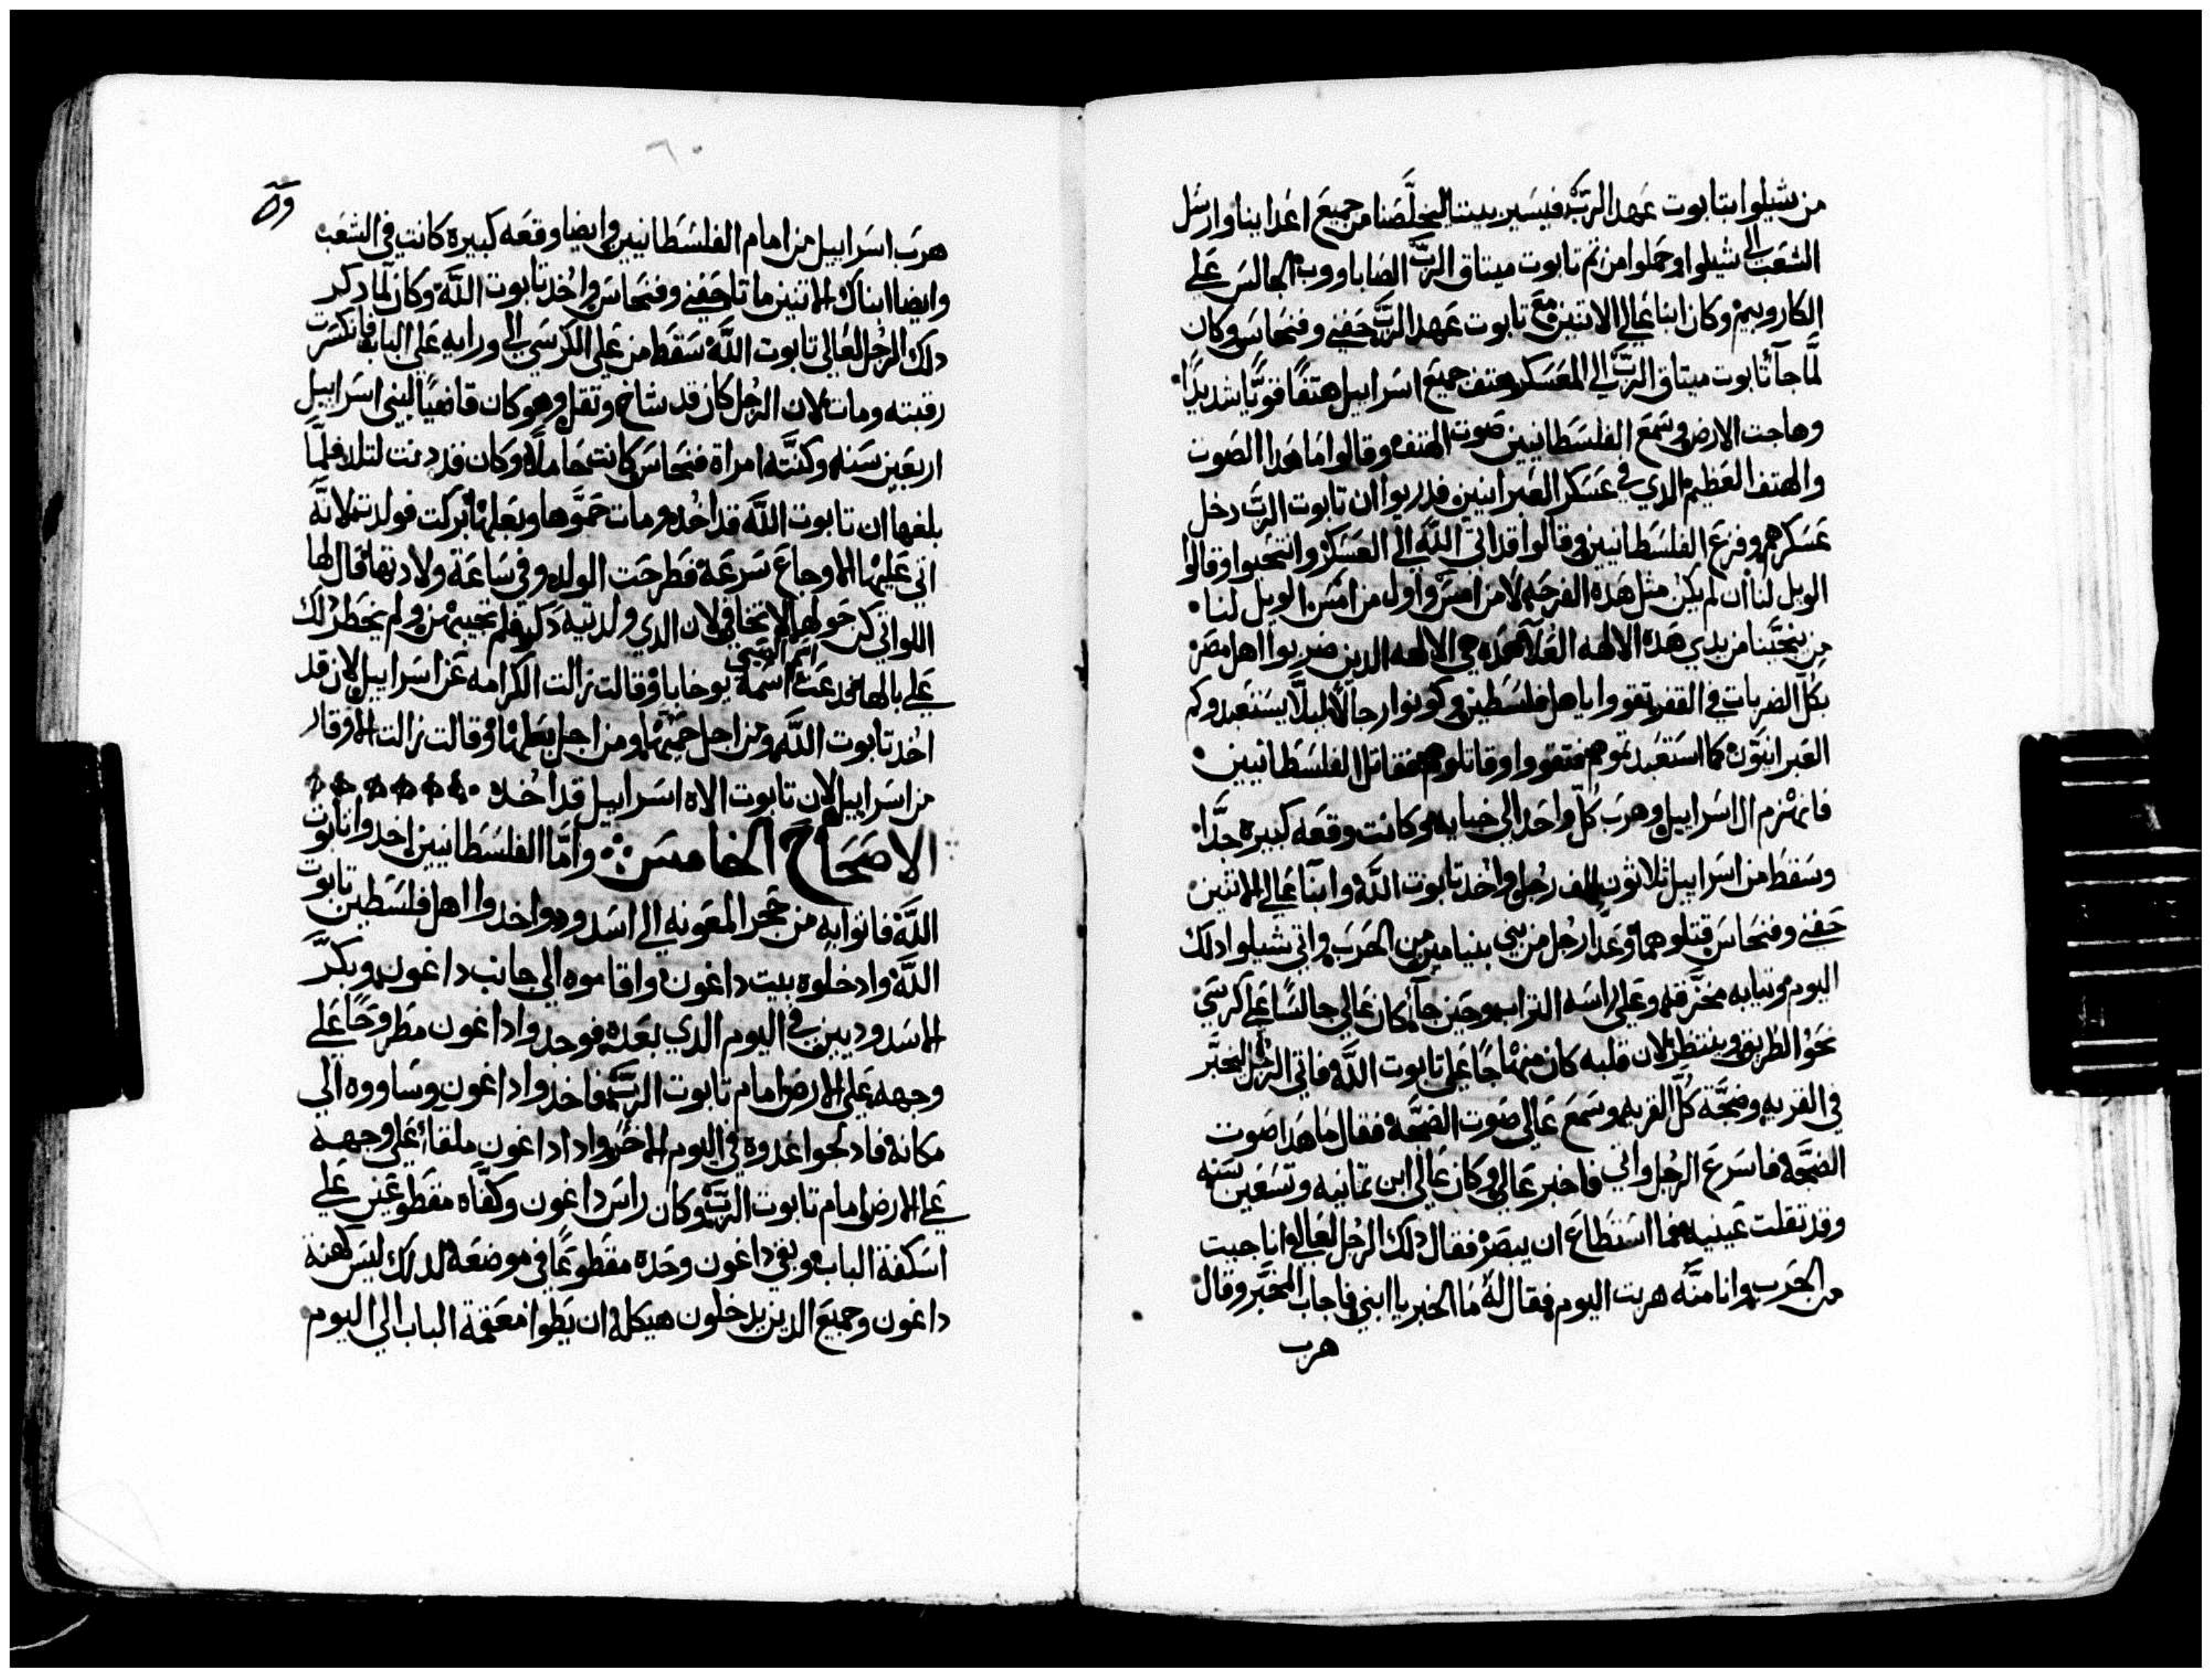 من شيلوا بتابوت عهد الرب فيسير بيننا ليخلصنا من جميع اعدابنا وارسل
الشعب الى شيلوا وحملوا من تم تابوت ميتاق الرب الصاباووت الجالس على
الكاروبيم وكان ابنا عالي الاتنين مع تابوت عهد الرب حفني وفنحاس وكان
لما جآ تابوت ميتاق الرب الى المعسكر هتف جميع اسراييل هتفا قويا شديدا
وهاجت الارض وسمع الفلسطانيين صوت الهتف وقالوا ما هدا الصوت
والهتف العظيم الدي في عسكر العبرانيين فدربوا ان تابوت الرب دخل
عسكرهم وفزع الفلسطانيين وقالوا قد اتى الله الى العسكر وانتحبوا وقالوا
الويل لنا ان لم يكن مثل هده الفرحه لا من امس واول من امس الويل لنا
من ينجينا من يدي هده الالهه العلا هده هي الالهه الدين ضربوا اهل مصر
بكل الضربات في القفر تقووا يا اهل فلسطين وكونوا رجالا ليلا يستعبدوكم
العبرانيون كما استعبدتوهم فتقووا وقاتلوهم فقاتل الفلسطانيين
فانهزم ال اسراييل وهرب كل واحد الى خبايه وكانت وقعه كبيره جدا
وسقط من اسراييل ثلاثون الف رجل واخد تابوت الله وابنا عالي الاتنين
حفني وفنحاس قتلوهما وعدا رجل من بني بنيامين من الحرب واتى شيلوا دلك
اليوم وتيابه مخرقه وعلى راسه التراب وحين جآ كان عالي جالسا على كرسي
نحو الطريق وينتظر لان قلبه كان منهاجا على تابوت الله فاتى الرجل ليخبر
في القريه وضجة كل القريه وسمع عالي صوت الضجه فقال ما هدا صوت
الضجه فاسرع الرجل واتى فاخبر عالي وكان عالي ابن تمانيه وتسعين سنه
وقد تقلت عينيه فما استطاع ان يبصر فقال دلك الرجل لعالي انا جيت
من الحرب وانا منه هربت اليوم فقال له ما الخبر يا ابني فاجاب المخبر وقال
هرب
٦٠
هرب اسراييل من امام الفلسطانيين وايضا وقعه كبيره كانت في الشعب
وايضا ابناك الاتنين ماتا حفني وفنحاس واخد تابوت الله وكان لما دكر
دلك الرجل لعالي تابوت الله سقط من على الكرسي الى ورايه على الباب فانكسرت
رقبته ومات لان الرجل كان قد شاخ وتقل وهو كان قاضيا لبني اسراييل
اربعين سنه وكنته امراة فنحاس كانت حامله وكان قد دنت لتلد فلما
بلغها ان تابوت الله قد اخد ومات حموها وبعلها بركت فولدت لانه
اتي عليها الاوجاع سرعة فطرحت الولد وفي ساعة ولادتها قال لها
اللواتي كن حولها لا تخافي لان الدي ولدتيه دكر فلم تجيبهن ولم يخطر دلك
على بالها فدعت اسم الصبي اسمه يوخاباد وقالت زالت الكرامه عن اسراييل لان قد
اخد تابوت الله ومن اجل حميها ومن اجل بعلها وقالت زالت الوقار
من اسراييل لان تابوت الاه اسراييل قد اخد
الاصحاح الخامس وأما الفلسطانيين اخدوا تابوت
الله فاتوا به من حجر المعونه الى اسدود واخدوا اهل فلسطين تابوت
الله وادخلوه بيت داغون واقاموه الى جانب داغون وبكر
الاسدوديين في اليوم الدي بعده فوجدوا داغون مطروحا على
وجهه على الارض امام تابوت الرب فاخدوا داغون وساووه الى
مكانه فادلجوا غدوه في اليوم الاخر وادا داغون ملقا على وجهه
على الارض امام تابوت الرب وكان راس داغون وكفاه مقطوعين على
اسكفة الباب وبقي داغون وحده مقطوعا في موضعه لدلك ليس كهنة
داغون وجميع الدين يدخلون هيكله ان يطوا معقمة الباب الى اليوم